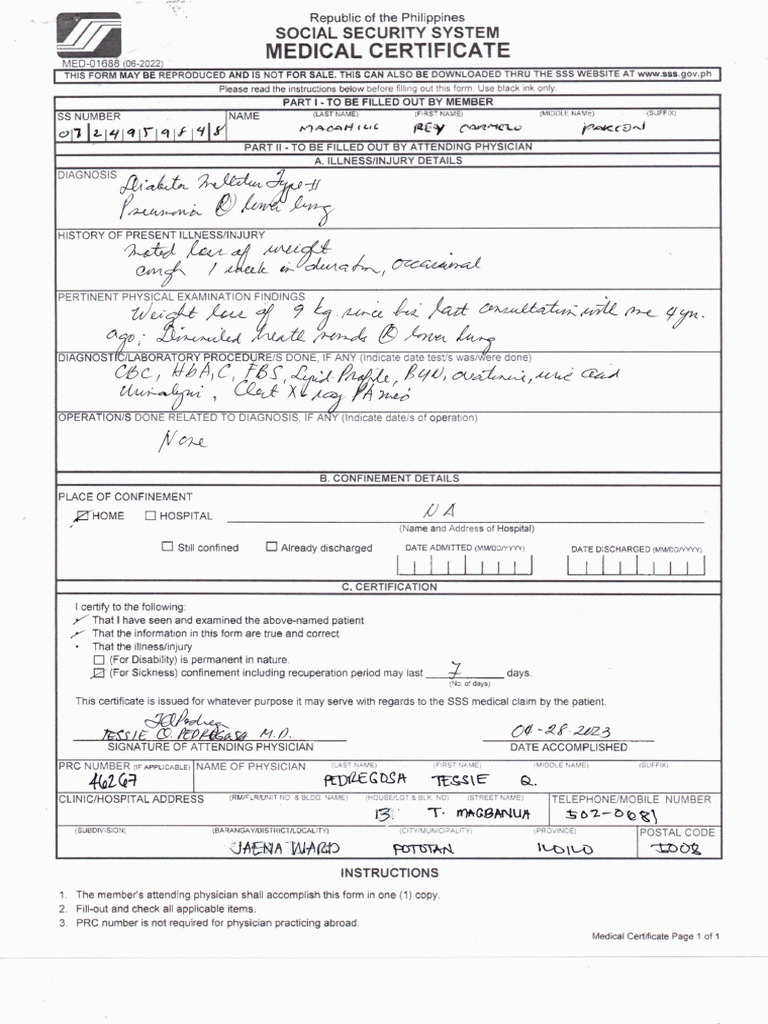 Republic of the Philippines
SOCIAL SECURITY SYSTEM
MEDICAL CERTIFICATE
MED-01688 (06-2022)
THIS FORM MAY BE REPRODUCED AND IS NOT FOR SALE. THIS CAN ALSO BE DOWNLOADED THRU THE SSS WEBSITE AT www.sss.gov.ph
Please read the instructions below before filling out this form. Use black ink only.
PART I - TO BE FILLED OUT BY MEMBER
SS NUMBER NAME (LAST NAME) (FIRST NAME) (MIDDLE NAME) (SUFFIX)
0724959848 REY CARMELO
PART II - TO BE FILLED OUT BY ATTENDING PHYSICIAN
A. ILLNESS/INJURY DETAILS
DIAGNOSIS Diabetes Mellitus Type II
Pneumonia (R) lower lung
HISTORY OF PRESENT ILLNESS/INJURY
noted loss of weight
cough 1 week in duration, occasional
PERTINENT PHYSICAL EXAMINATION FINDINGS
Weight loss of 9 kg. since his last consultation with me 4 yrs.
ago; Diminished breath sounds (R) lower lung
DIAGNOSTIC/LABORATORY PROCEDURE/S DONE, IF ANY (Indicate date test/s was/were done)
CBC, HbA1C, FBS, Lipid Profile, BUN, creatinine, uric acid
Urinalysis, Chest X-ray PA
OPERATION/S DONE RELATED TO DIAGNOSIS, IF ANY (Indicate date/s of operation)
None
B. CONFINEMENT DETAILS
PLACE OF CONFINEMENT
HOME HOSPITAL NA
(Name and Address of Hospital)
Still confined Already discharged DATE ADMITTED (MM/DD/YYYY) DATE DISCHARGED (MM/DD/YYYY)
C. CERTIFICATION
I certify to the following:
That I have seen and examined the above-named patient
That the information in this form are true and correct
• That the illness/injury
(For Disability) is permanent in nature.
(For Sickness) confinement including recuperation period may last 7 days.
(No. of days)
This certificate is issued for whatever purpose it may serve with regards to the SSS medical claim by the patient.
TESSIE Q. PEDREGOSA M.D. 04-28-2023
SIGNATURE OF ATTENDING PHYSICIAN DATE ACCOMPLISHED
PRC NUMBER (IF APPLICABLE) NAME OF PHYSICIAN (LAST NAME) (FIRST NAME) (MIDDLE NAME) (SUFFIX)
46267 PEDREGOSA TESSIE Q.
CLINIC/HOSPITAL ADDRESS (RM/FLR/UNIT NO. & BLDG. NAME) (HOUSE/LOT & BLK NO) (STREET NAME) TELEPHONE/MOBILE NUMBER
13 T. MAGBANUA 502-0681
(SUBDIVISION) (BARANGAY/DISTRICT/LOCALITY) (CITY/MUNICIPALITY) (PROVINCE) POSTAL CODE
JAENA WARD POTOTAN ILOILO 5008
INSTRUCTIONS
1. The member's attending physician shall accomplish this form in one (1) copy.
2. Fill-out and check all applicable items.
3. PRC number is not required for physician practicing abroad.
Medical Certificate Page 1 of 1